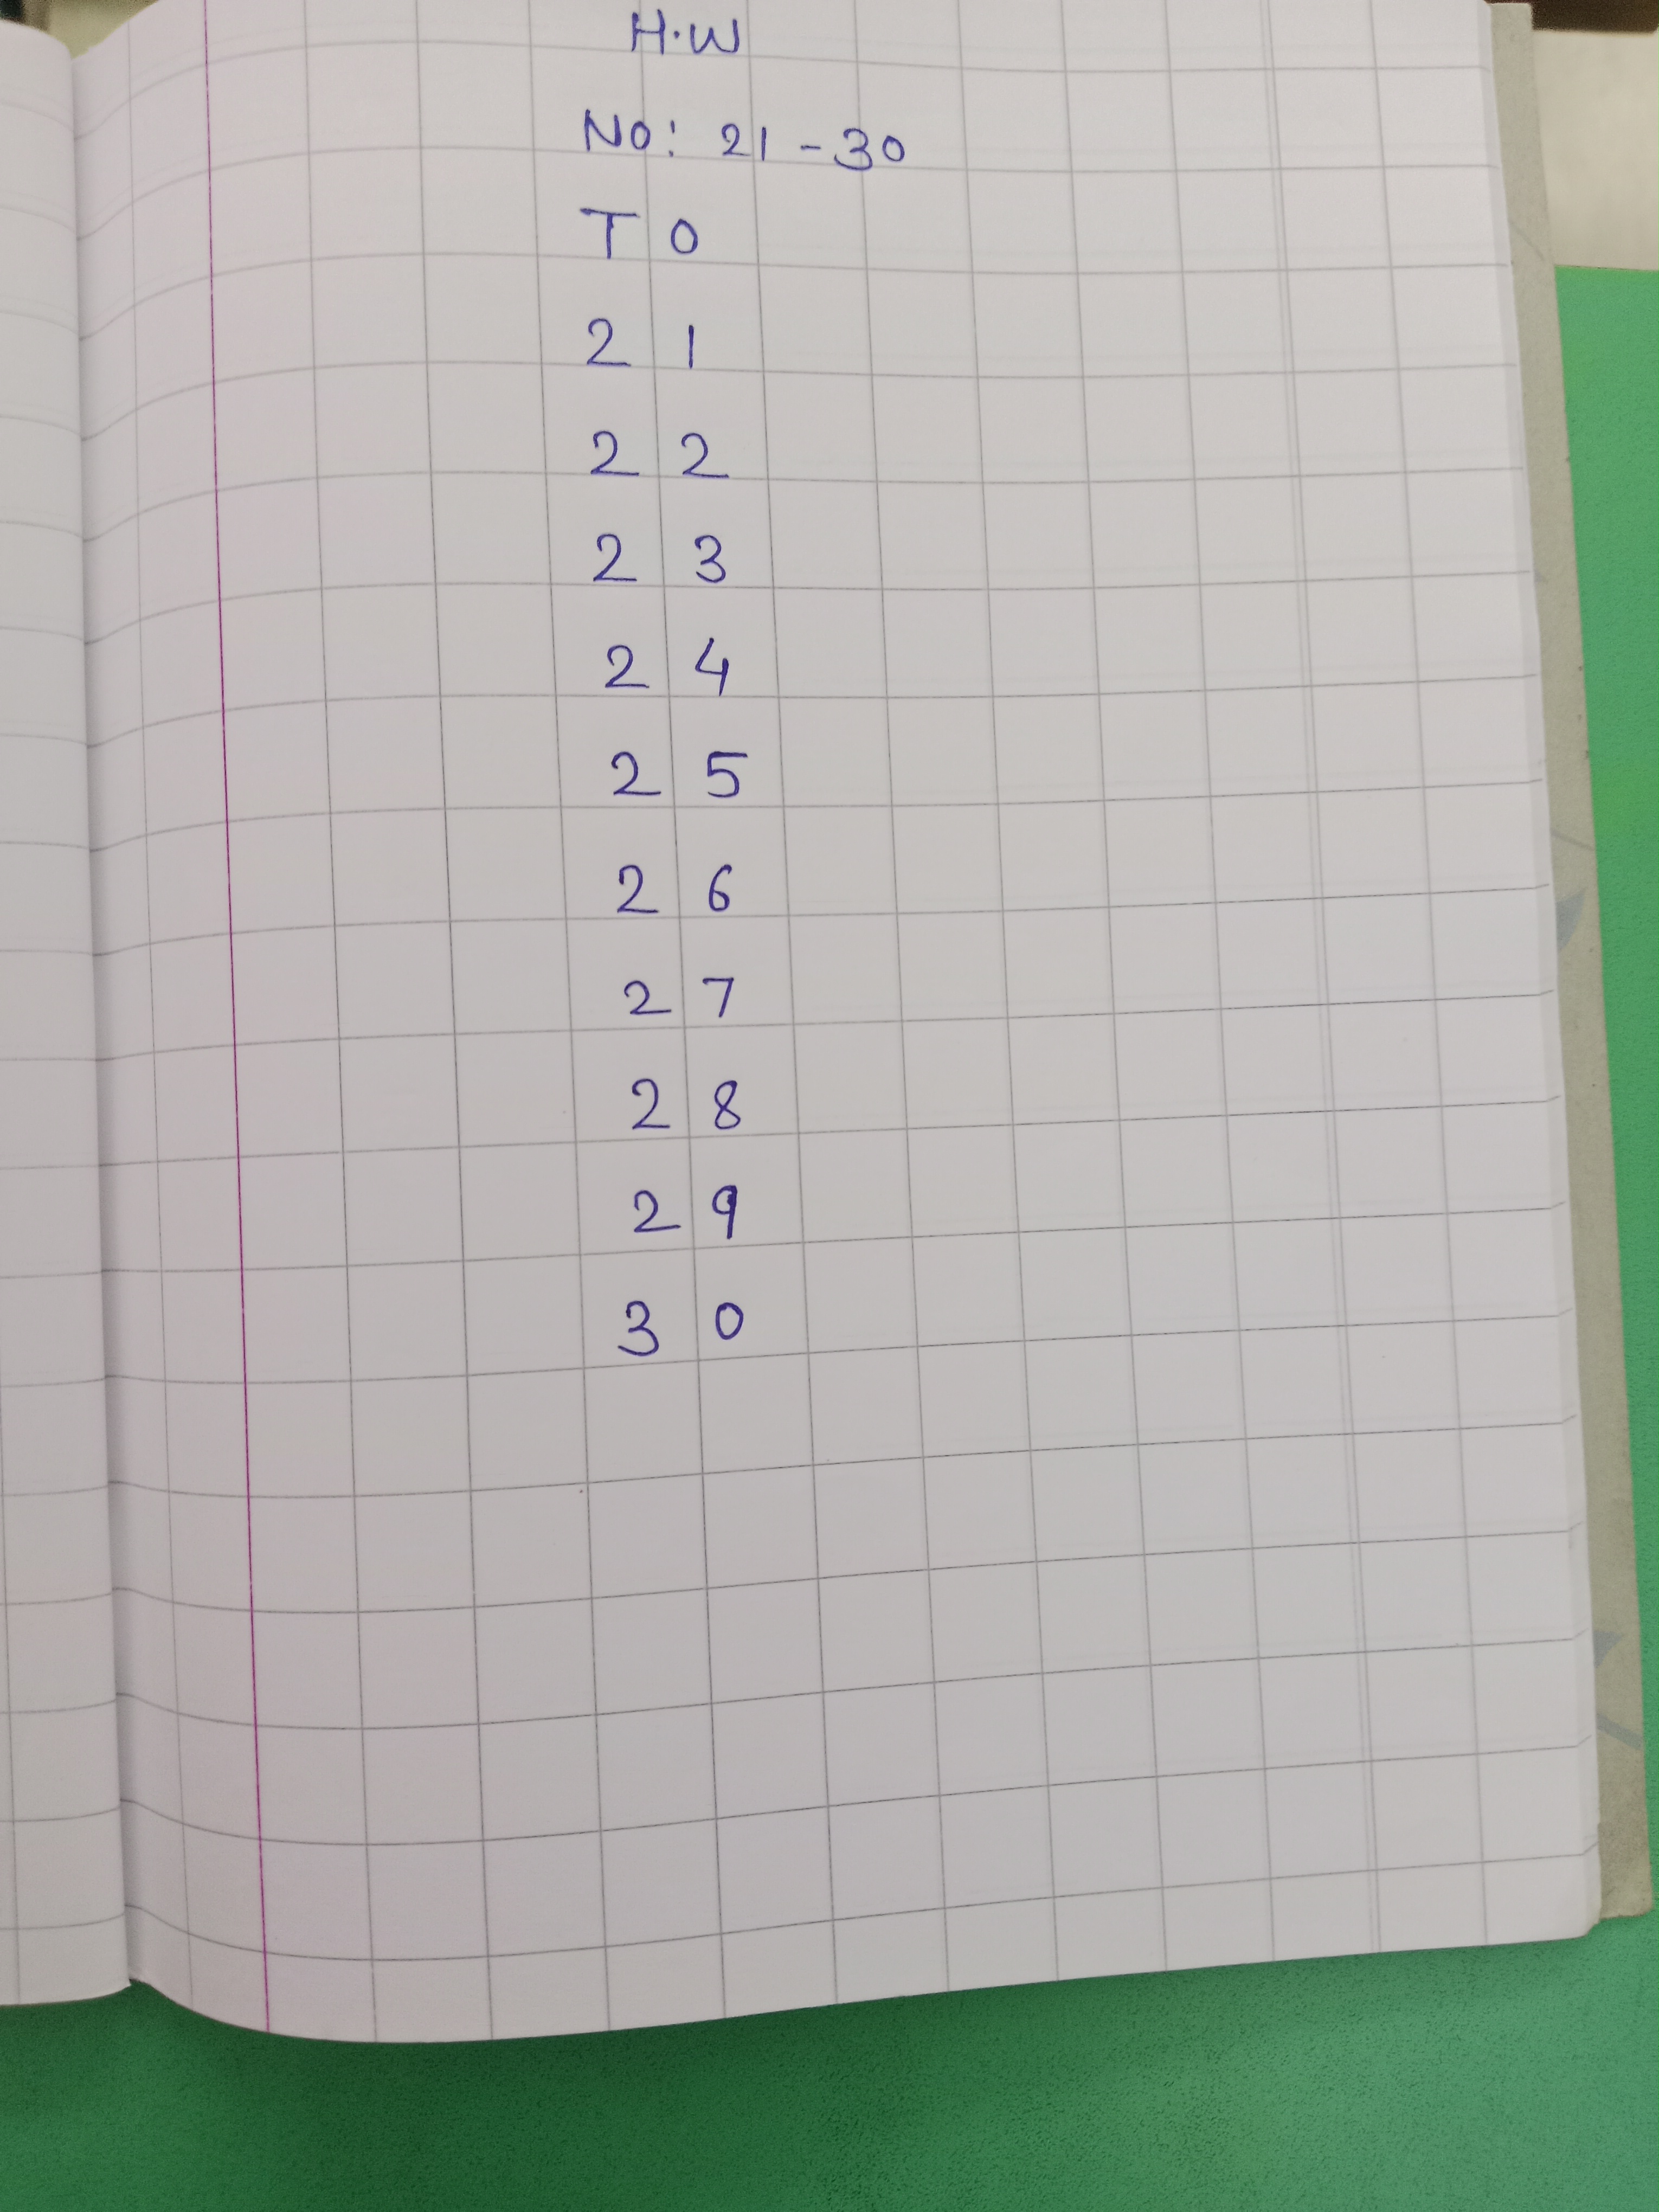 H.W
No: 21 - 30
T O
2 1
2 2
2 3
2 4
2 5
2 6
2 7
2 8
2 9
3 0